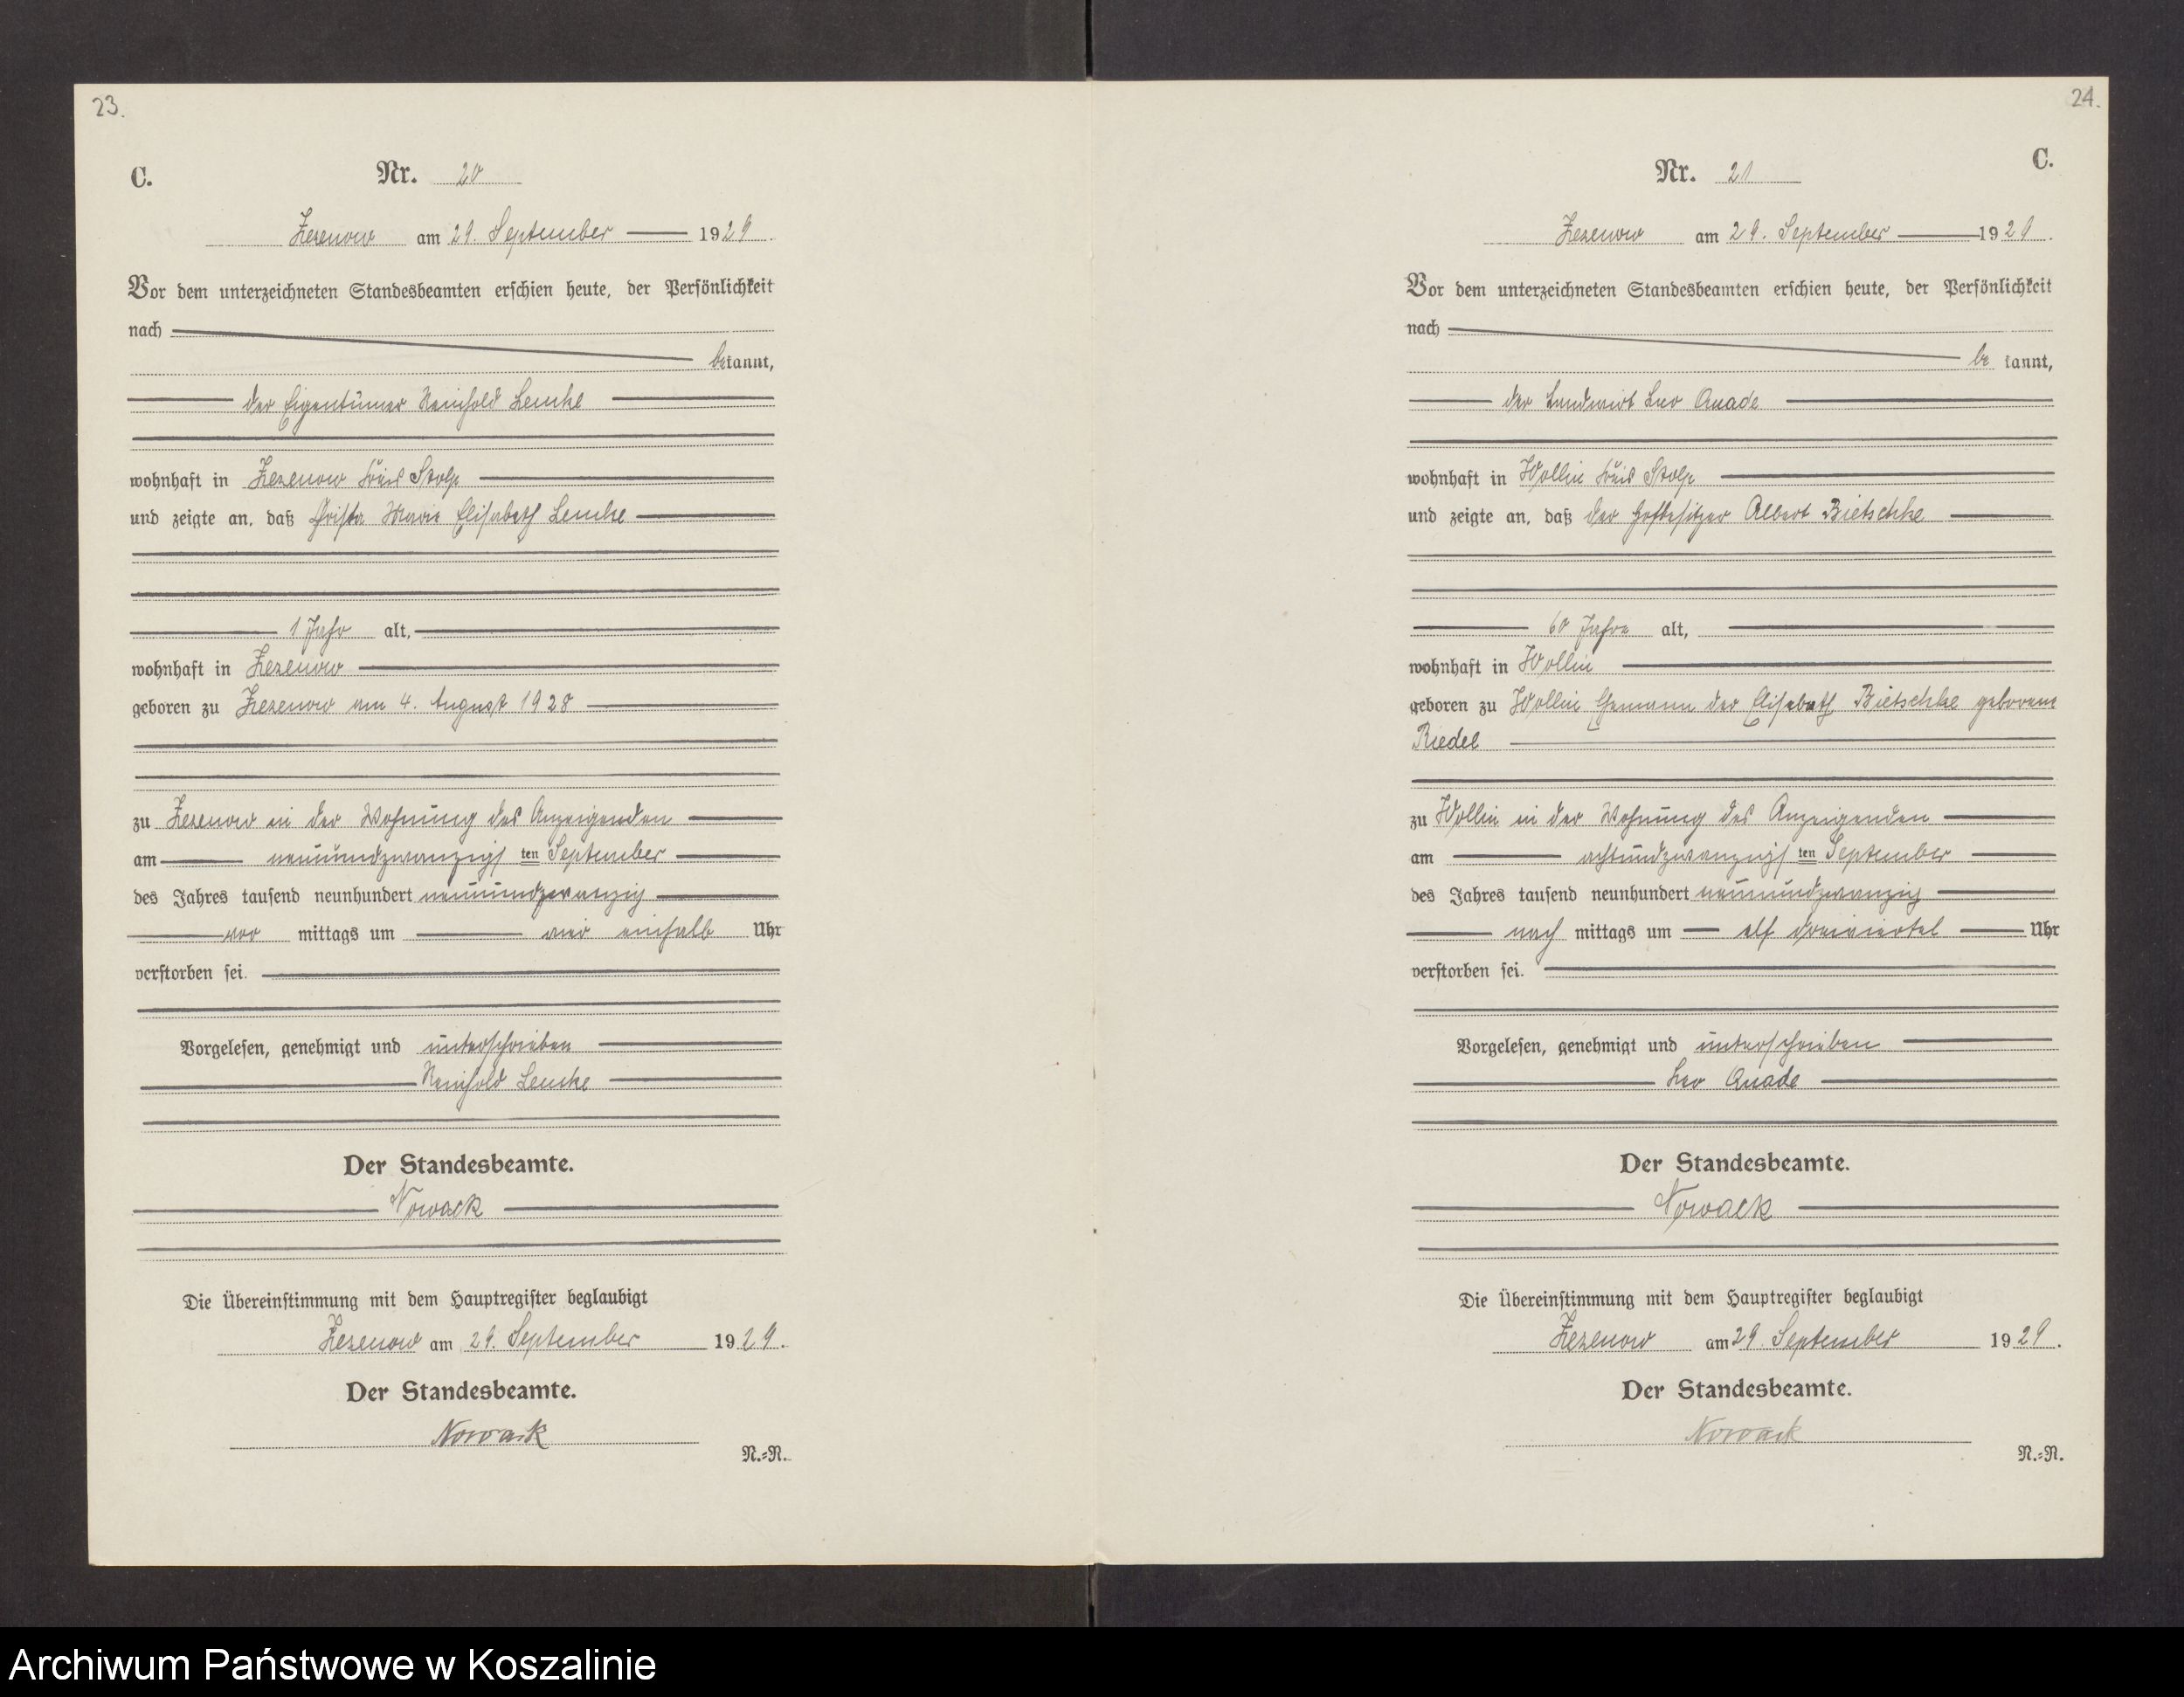 23.
C.
Nr. 20
Zezenow am 29. September 1929.
Vor dem unterzeichneten Standesbeamten erschien heute, der Persönlichkeit
nach
bekannt,
der Eigentümer Reinhold Lemke
wohnhaft in Zezenow Kreis Stolp
und zeigte an, daß Christa Marie Elisabeth Lemke
1 Jahr alt,
wohnhaft in Zezenow
geboren zu Zezenow am 4. August 1928
zu Zezenow in der Wohnung des Anzeigenden
am neunundzwanzigsten September
des Jahres tausend neunhundert neunundzwanzig
vor mittags um vier einhalb Uhr
verstorben sei.
Vorgelesen, genehmigt und unterschrieben
Reinhold Lemke
Der Standesbeamte.
Nowack
Die Übereinstimmung mit dem Hauptregister beglaubigt
Zezenow am 29. September 1929.
Der Standesbeamte.
Nowack
N.=N.
24.
C.
Nr. 21
Zezenow am 29. September 1929.
Vor dem unterzeichneten Standesbeamten erschien heute, der Persönlichkeit
nach
be kannt,
der Landwirt Leo Quade
wohnhaft in Wollin Kreis Stolp
und zeigte an, daß der Hofbesitzer Albert Bietschke
60 Jahre alt,
wohnhaft in Wollin
geboren zu Wollin Ehemann der Elisabeth Bietschke geborene
Riedel
zu Wollin in der Wohnung des Anzeigenden
am achtundzwanzigsten September
des Jahres tausend neunhundert neunundzwanzig
nach mittags um elf dreiviertel Uhr
verstorben sei.
Vorgelesen, genehmigt und unterschrieben
Leo Quade
Der Standesbeamte.
Nowack
Die Übereinstimmung mit dem Hauptregister beglaubigt
Zezenow am 29. September 1929.
Der Standesbeamte.
Nowack
N.=N.
Archiwum Państwowe w Koszalinie